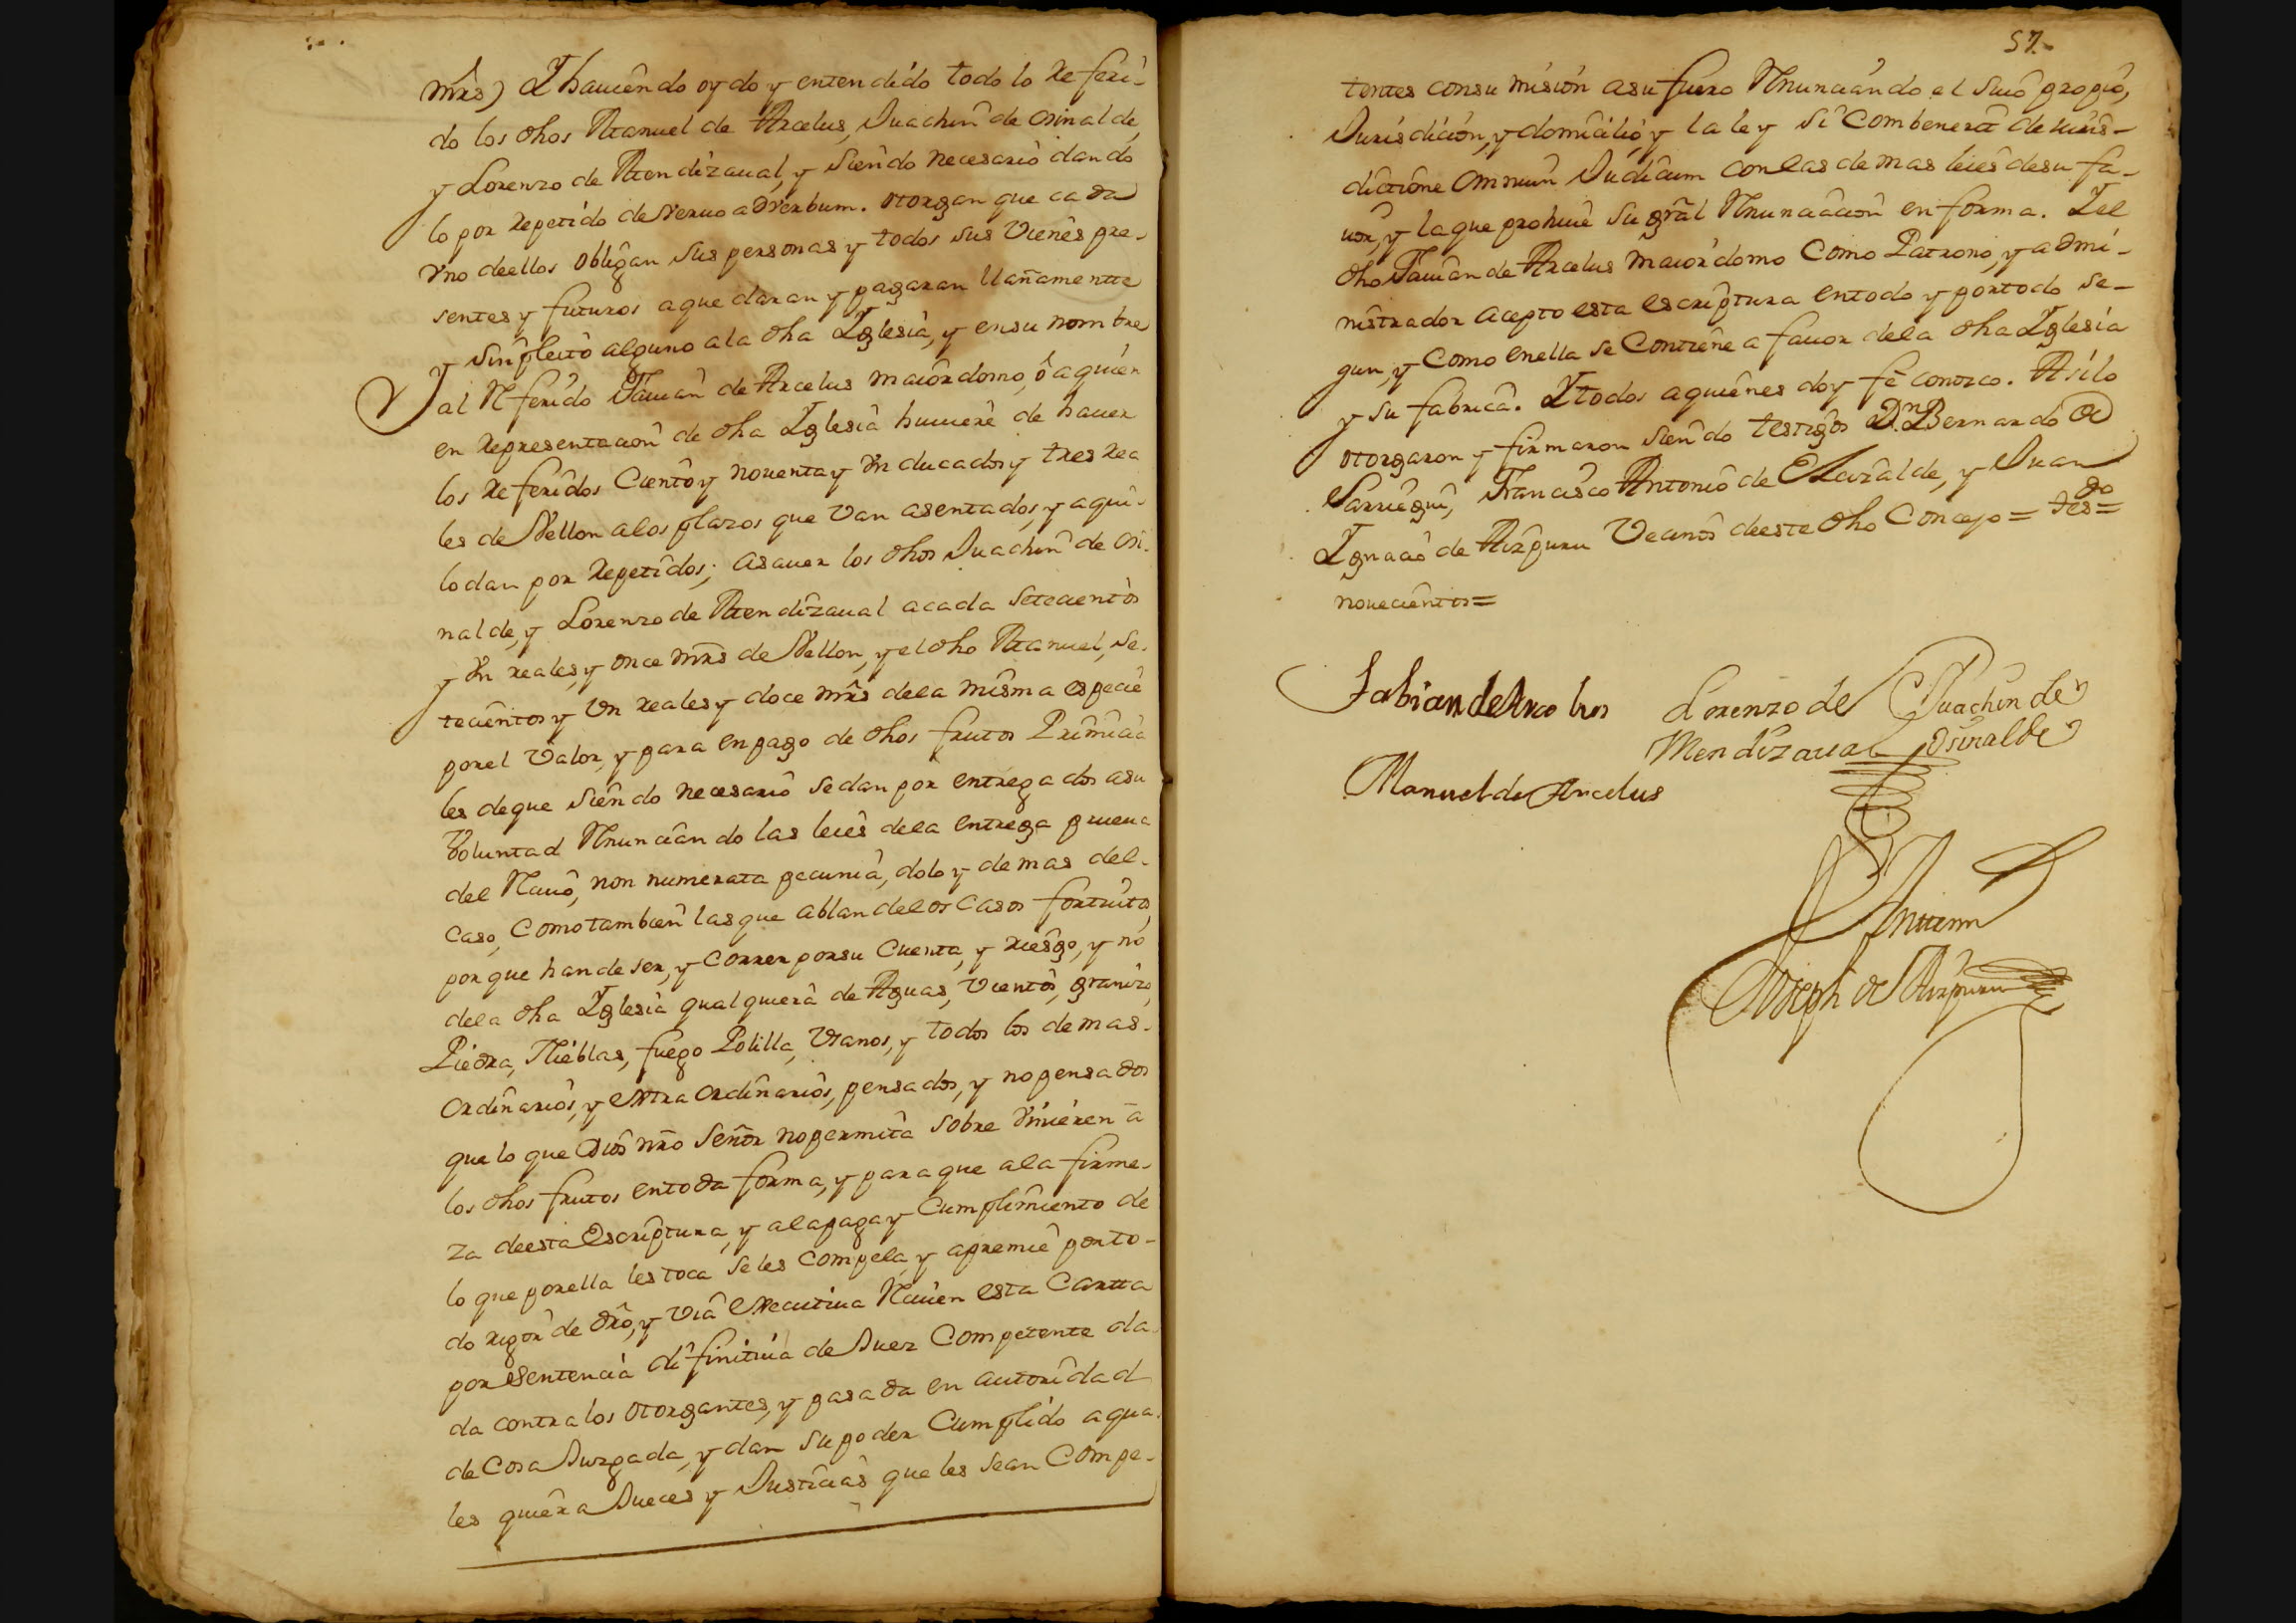 mrs) Y hauiendo oydo y entendido todo lo referi-
do los dhos Manuel de Arcelus, Juachin de Osinalde,
y Lorenzo de Mendizaual, y siendo necesario dando
lo por repetido de Veruo adverbum. otorgan que cada
vno deellos obligan sus personas y todos sus vienes pre-
sentes y futuros aque daran y pagaran llañamentte
y sin pleito alguno ala dha Yglesia, y ensu nombre
al Referido Fauian de Arcelus maiordomo, ô aquien
en representacion de dha Yglesia huuiere de hauer
los referidos Ciento y nouenta y vn ducados y tres rea
les de Vellon alos plazos que van asentados, y aqui
lo dan por repetidos; asauer los dhos Juachin de Osi-
nalde, y Lorenzo de Mendizaual acada setecientos
y vn reales, y once mrs de Vellon, y el dho Manuel, se-
tecientos y vn reales y doce mrs dela misma especie
porel valor, y para en pago de dhos frutos Primicia
les deque siendo necesario sedan por entregados asu
voluntad Rnunciando las leies dela entrega prueua
del Reciuo, non numerata pecunia, dolo y demas del-
caso, como tambien lasque ablan delos casos fortuitos,
porque han de ser, y correr porsu cuenta, y riesgo, y no
dela dha Yglesia qualquiera de Aguas, vientos, granizo,
Piedra, Nieblas, fuego Polilla, vsanos, y todos los demas-
ordinarios, y extra ordinarios, pensados, y nopensados
que lo que Dios nro Señor nopermita sobre vinieren â
los dhos frutos entoda forma, y para que ala firme-
za deesta Escriptura, y alapaga y cumplimiento de
lo que porella les toca seles compela, y apremie porto-
do rigor de dro, y via executiua Reciuen esta Cartta
por sentencia difinitiua de Juez Competente da
da contra los otorgantes, y pasada en autoridad
de Cosa Juzgada, y dan su poder cumplido aqua
les quiera Jueces y Justicias que les sean Compe-
57.
tentes consu mision asu fuero Rnunciando el suio propio,
Jurisdicion, y domicilio, y la ley si combenerit de iuris-
dictione omnium Judicum con las de mas leies desu fa-
uor, y la que prohiue su gral Rnunciacion en forma. Y el
dho Fauian de Arcelus maiordomo Como Patrono, y admi-
nistrador acepto esta escriptura entodo y portodo se-
gun, y como enella se contiene a fauor dela dha Yglesia
y su fabrica. Y todos aquienes doy fé conozco. Asilo
otorgaron y firmaron siendo testigos Dn Bernardo de
Sarriegui, Francisco Antonio de Elicalde, y Juan
Ygnacio de Aizpuru Vecinos deeste dho Concejo = tesdo=
nouecientos=
Fabian de Arcelus
Lorenzo de
Mendizaual
Juachin de
Osinalde
Manuel de Arcelus
Antte mi
Joseph de Aizpuru